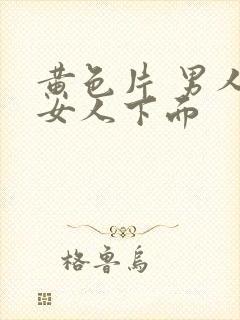 黄色片 男人
女人下面
格鲁乌